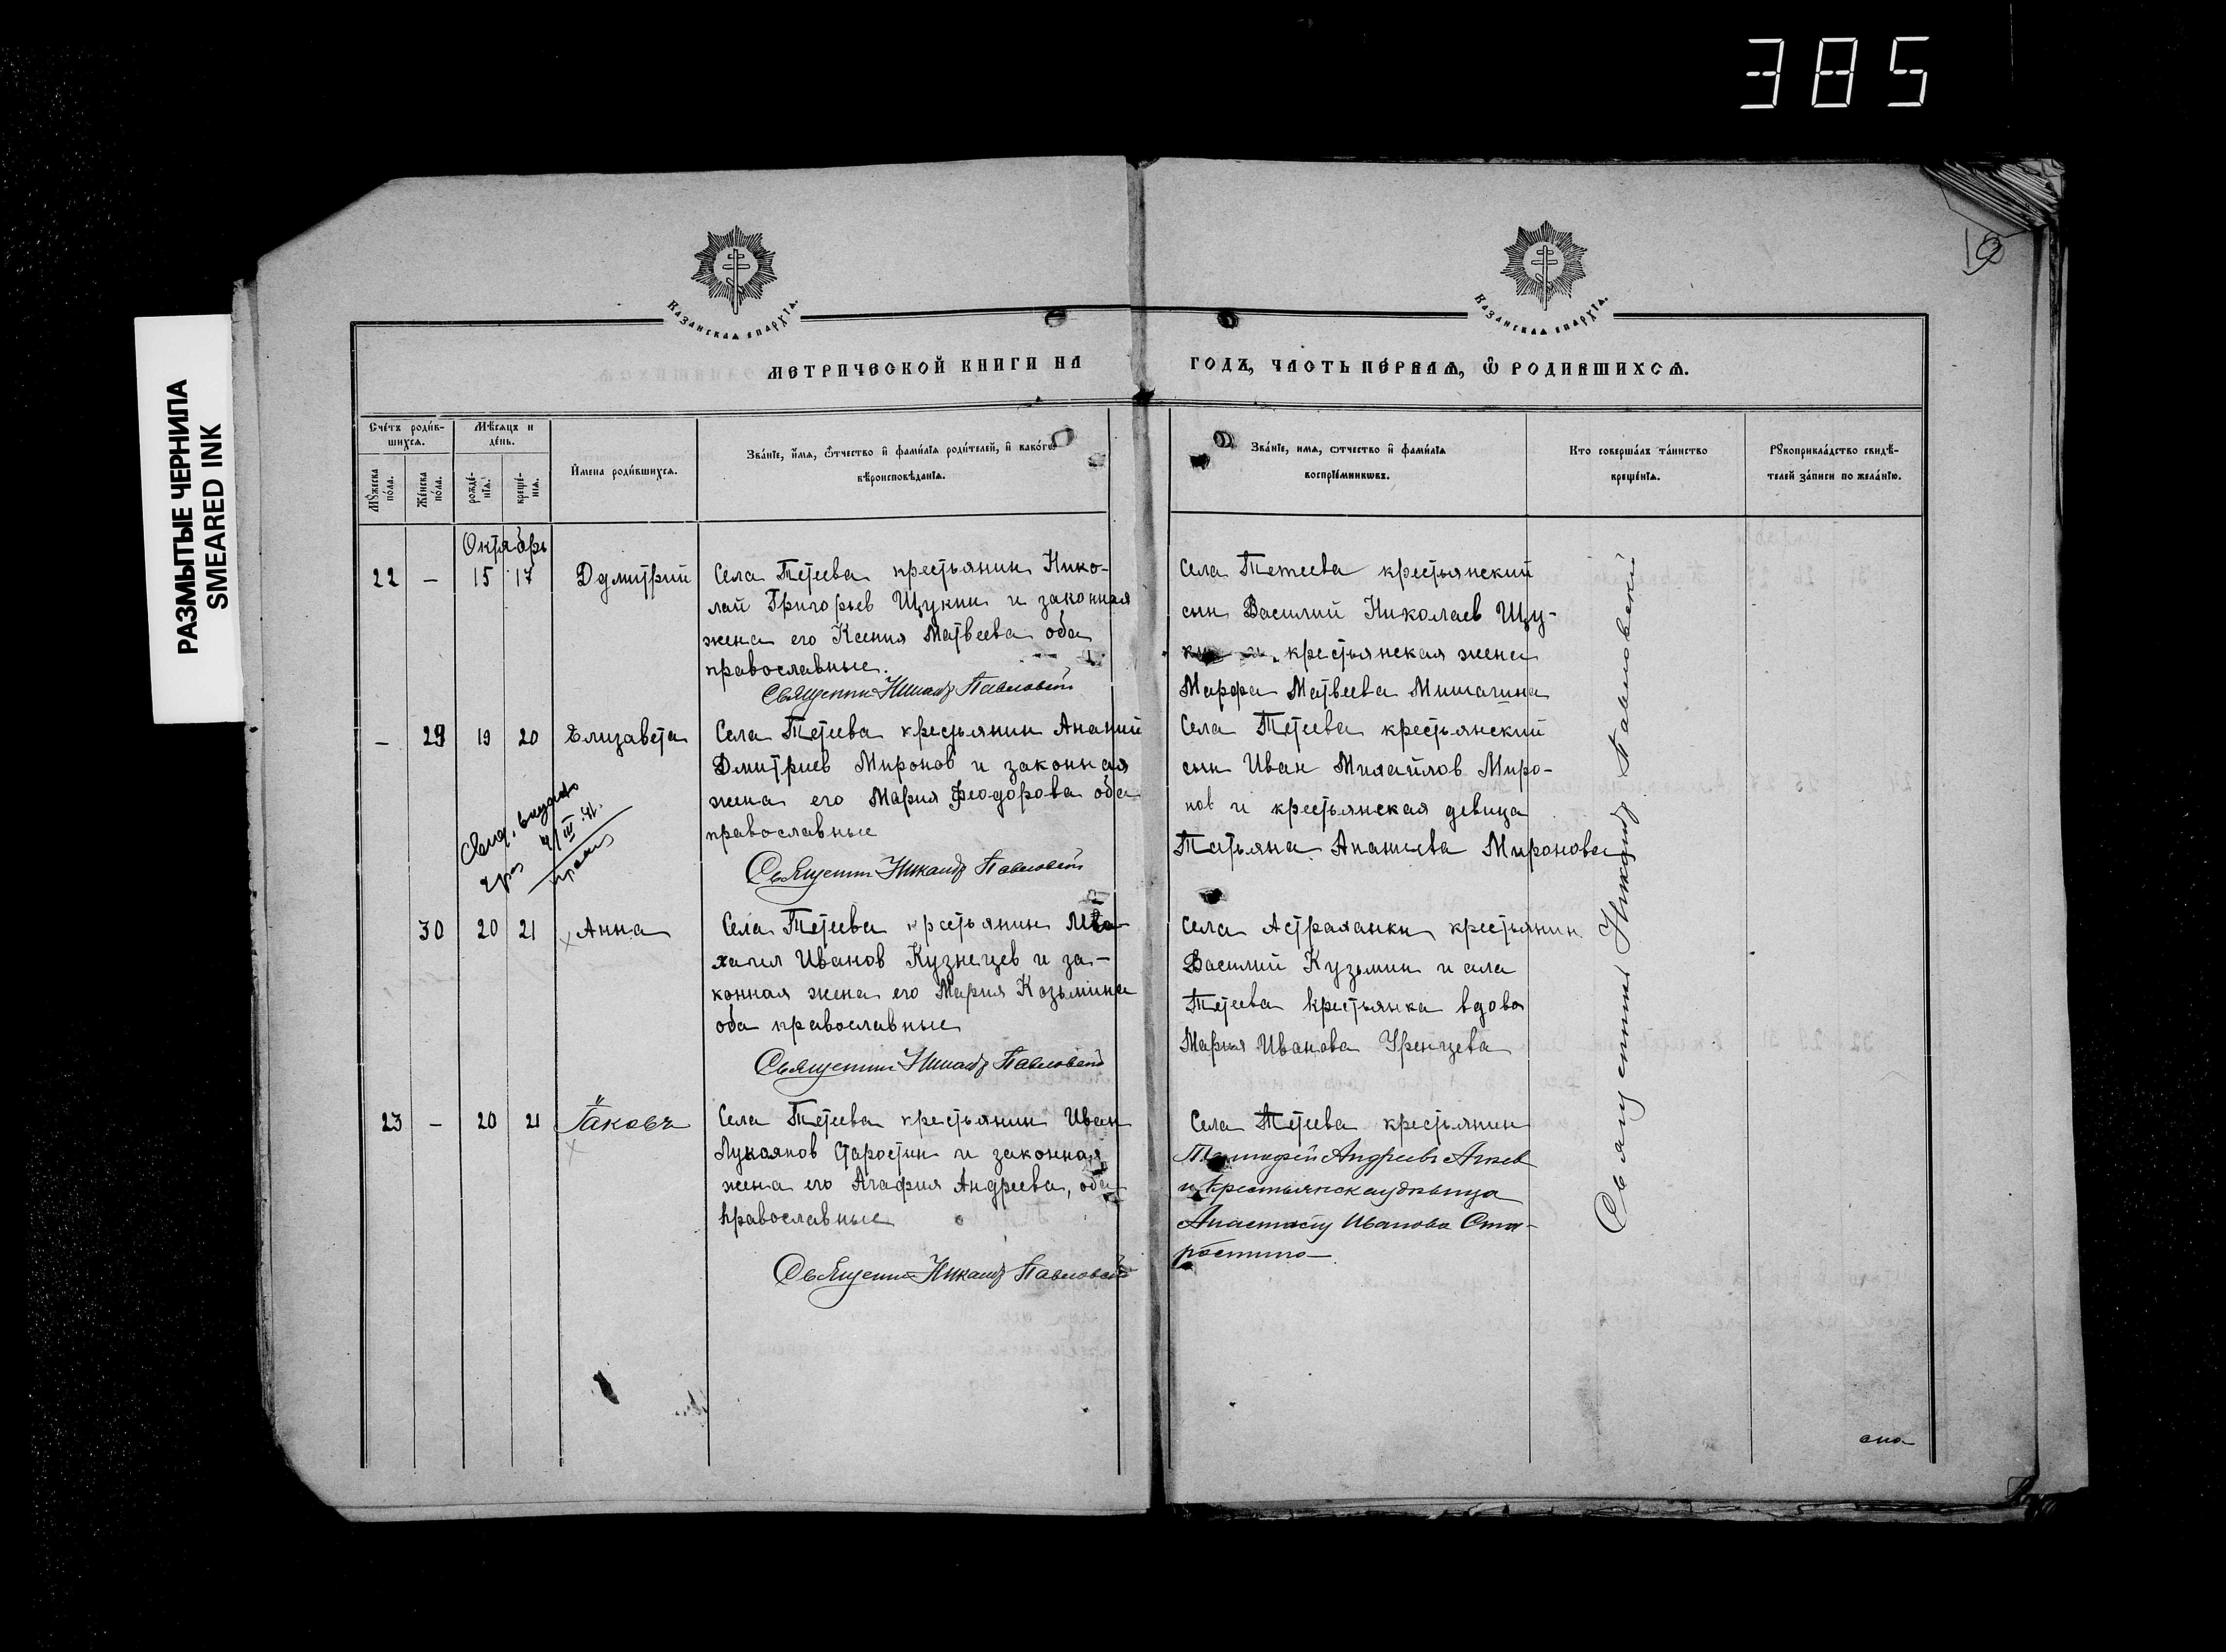 385
РАЗМЫТЫЕ ЧЕРНИЛА
SMEARED INK
Казанская епархїа.
Казанская епархїа.
МЕТРИЧЕСКОЙ КНИГИ НА
ГОДЪ, ЧАСТЬ ПЕРВАЯ, Ѽ РОДИВШИХСЯ.
Счетъ родив-
шихся.
Мѣсяцъ и
день.
Мужеска
пола.
Женска
пола.
рожде-
нїя.
креще-
нїя.
Имена родившихся.
Званїе, имя, ѿчество и фамилїя родителей, и какогѡ
вѣроисповѣданїя.
Званїе, имя, ѿчество и фамилїя
воспрїемникωвъ.
Кто совершалъ таинство
крещенїя.
Рукоприкладство свидѣ-
телей записи по желанїю.
Октябрь
22 — 15 17 Ддмитрий
Села Тетеева крестьянин Нико-
лай Григорьев Щукин и законная
жена его Ксения Матвеева оба
православные.
Священник Никандр Павловский
Села Тетеева крестьянский
сын Василий Николаев Щу-
крестьянская жена
Марфа Матвеева Мишагина
— 29 19 20 Елизавета
Села Тетеева крестьянин Ананий
Дмитриев Миронов и законная
жена его Мария Феодорова оба
православные
Священник Никандр Павловский
Села Тетеева крестьянский
сын Иван Михайлов Миро-
нов и крестьянская девица
Татьяна Ананиева Миронова
30 20 21 Анна
Села Тетеева крестьянин Ми-
хаил Иванов Кузнецев и за-
конная жена его Мария Козьмина
оба православные
Священник Никандр Павловский
Села Астраханки крестьянин
Василий Кузьмин и села
Тетеева крестьянка вдова
Мария Иванова Уренцева
23 — 20 21 Їаковъ
Села Тетеева крестьянин Иван
Лукаянов Старостин и законная
жена его Агафия Андреева, оба
православные
Священник Никандр Павловский
Села Тетеева крестьянин
Андреевъ
и крестьянская девица
Анастасия Иванова Ста-
ростина
Священник Никандр Павловский